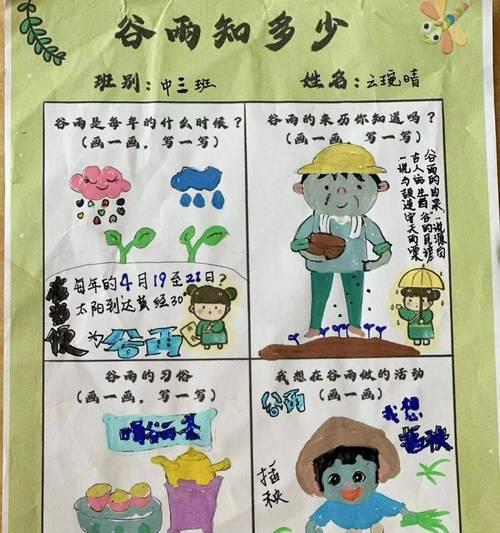 谷雨知多少
班别:中三班
姓名:云琬晴
谷雨是每年的什么时候?
(画一画,写一写)
每年的4月19至21日?
太阳到达黄经30
便为谷雨
谷雨的来历你知道吗?
(画一画,写一写)
谷雨的由来
一说源自
一说与颉造字天雨粟
谷雨的习俗
(画一画,写一写)
喝谷雨茶
我想在谷雨做的活动
(画一画)
谷雨
我想
插秧
插秧